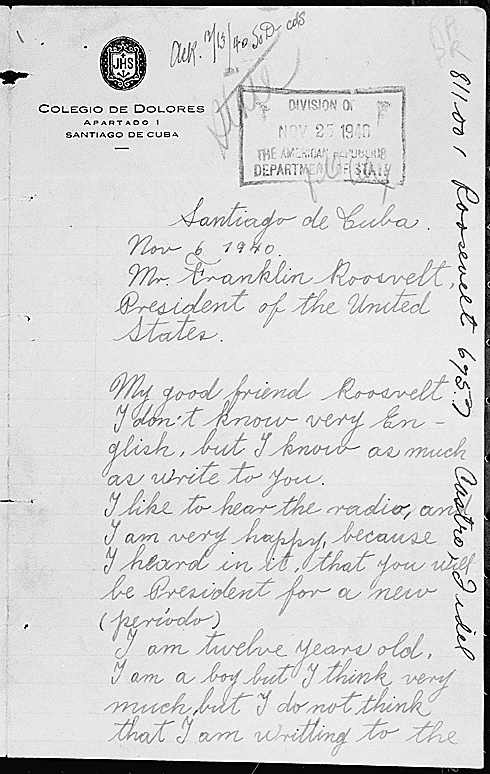 JHS
COLEGIO DE DOLORES
APARTADO 1
SANTIAGO DE CUBA
Ack. 12/13/40
State
DIVISION OF
NOV 25 1940
THE AMERICAN REPUBLICS
DEPARTMENT OF STATE
Santiago de Cuba.
Nov 6 1940.
Mr. Franklin Roosvelt,
President of the United
States.
My good friend Roosvelt
I don't know very En-
glish, but I know as much
as write to you.
I like to hear the radio, and
I am very happy, because
I heard in it, that you will
be President for a new
(período)
I am twelve years old.
I am a boy but I think very
much, but I do not think
that I am writting to the
811.001 Roosevelt Castro, Fidel